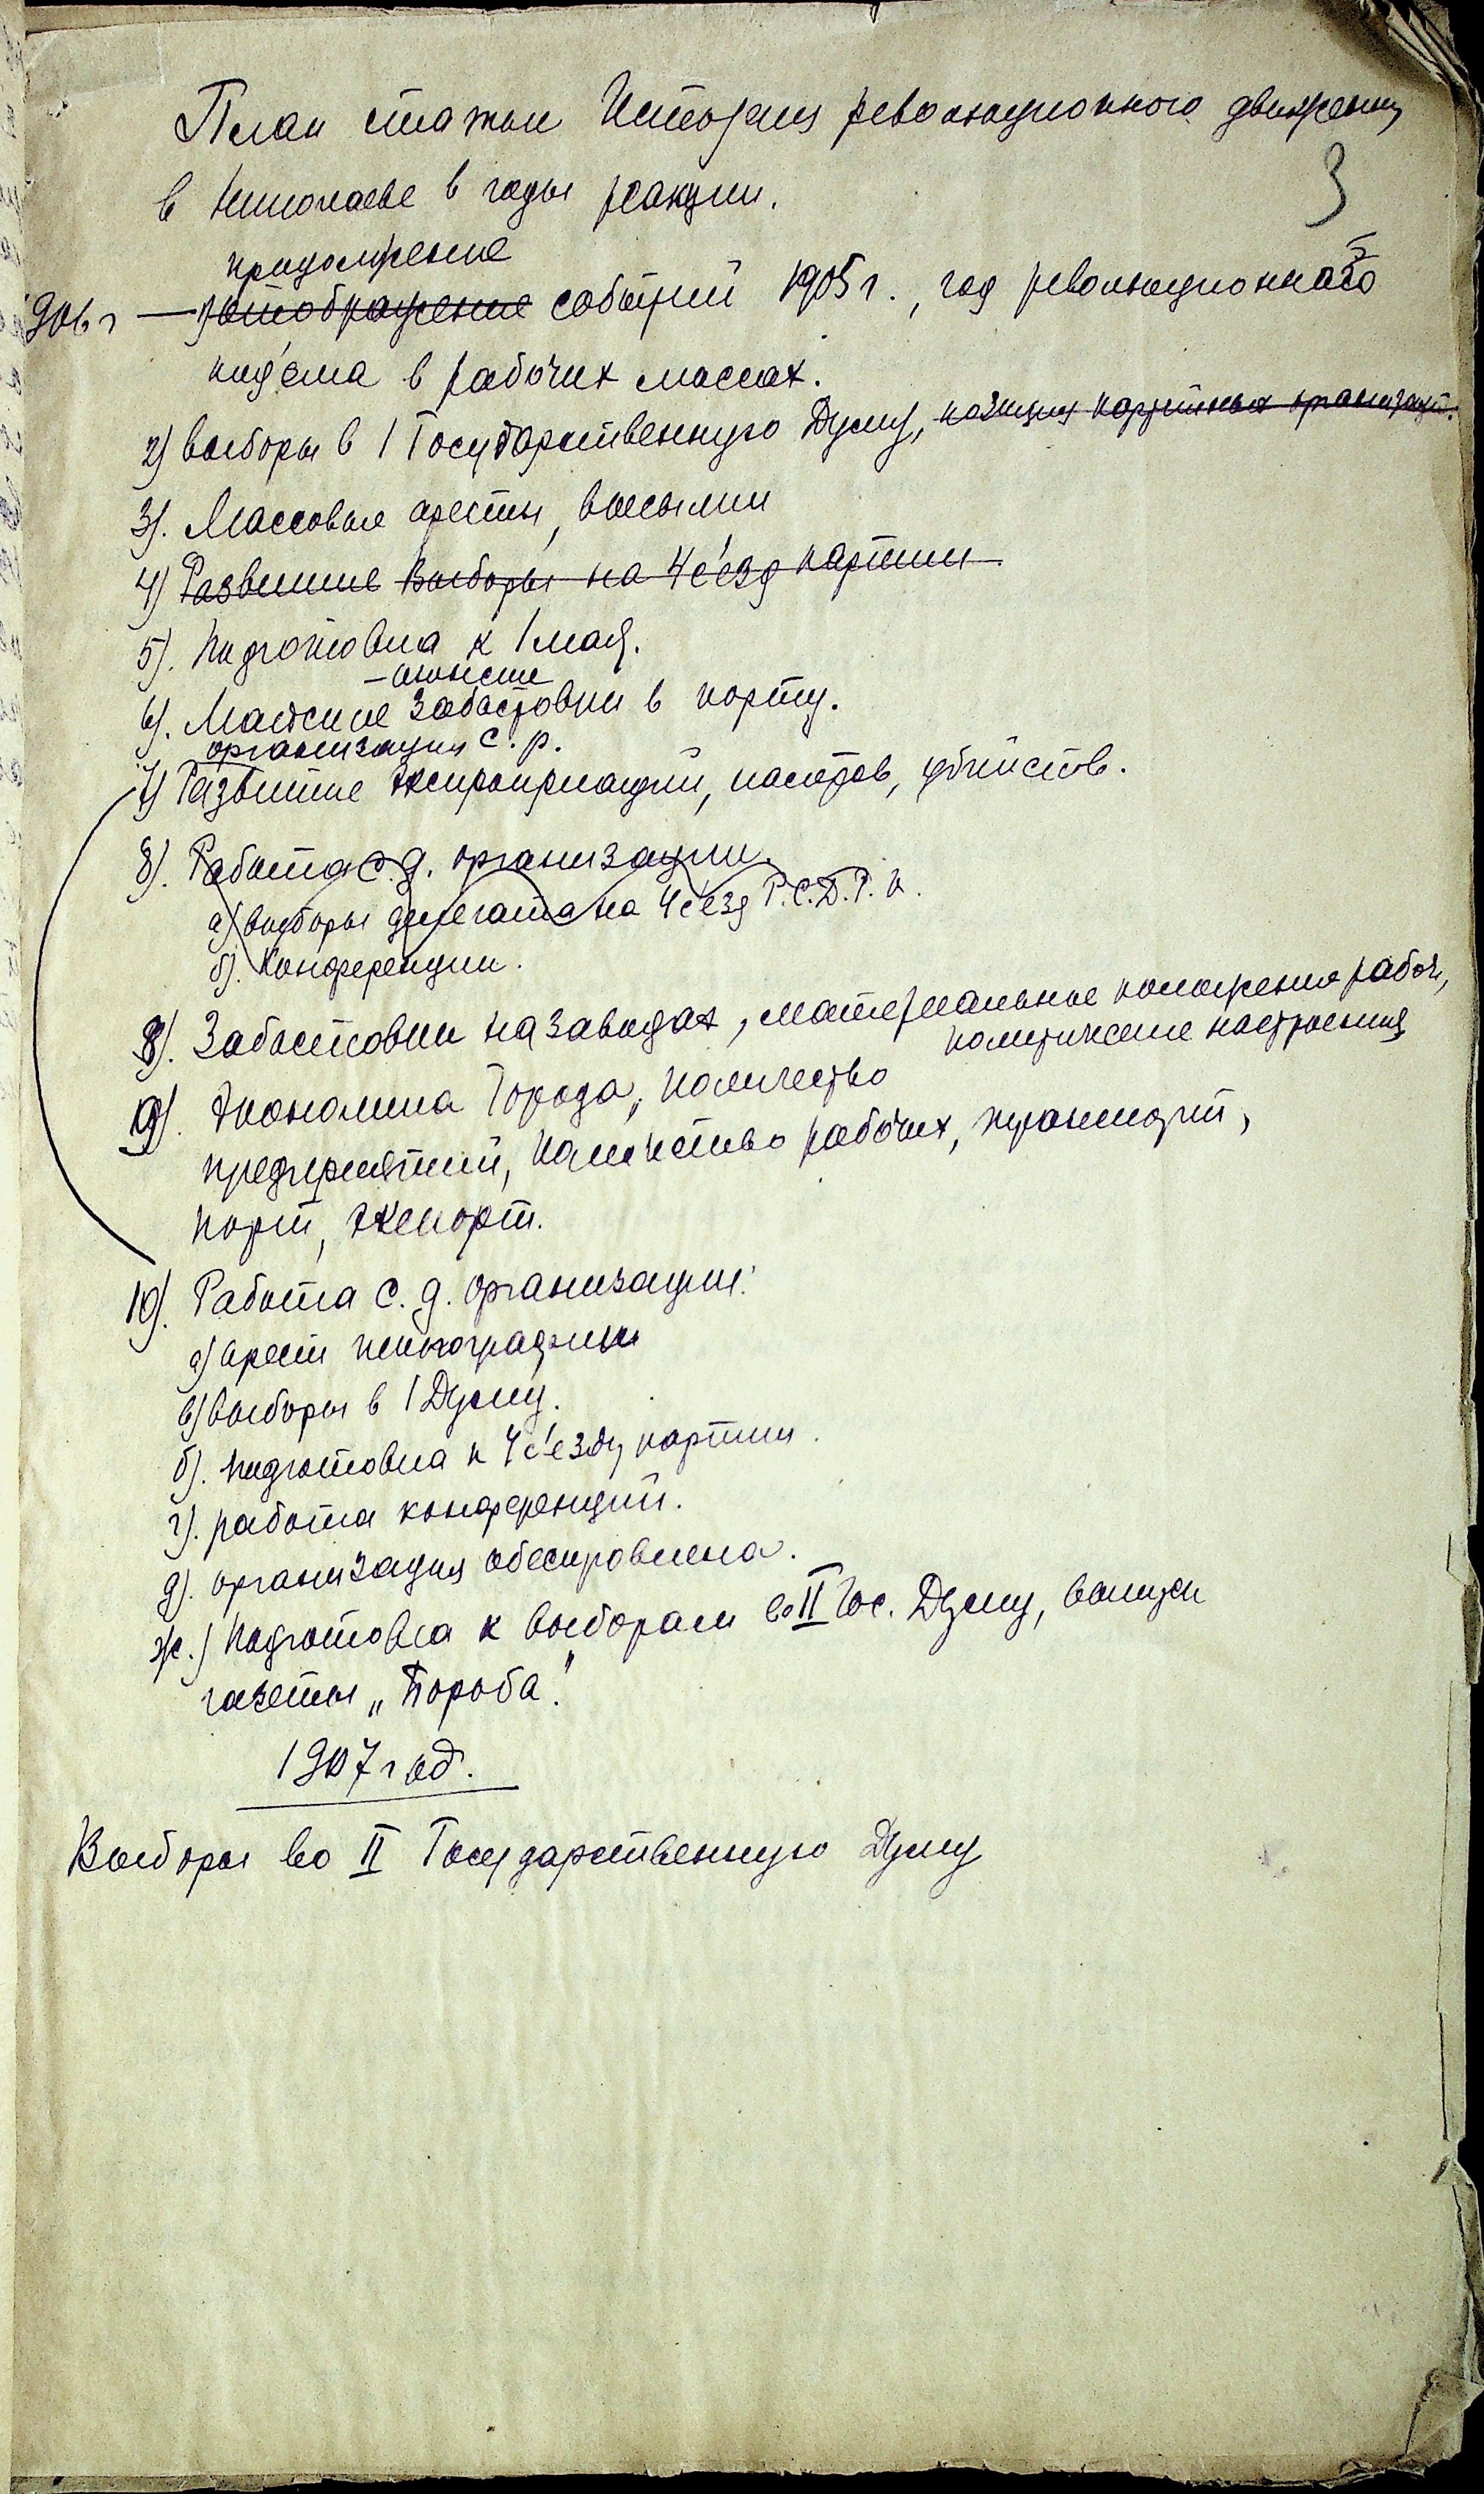 План статьи История революционного движения
3
в Николаеве в годы реакции.
продолжение
906 г — 1) отображение событий 1905 г., год революционного
5
под'ема в рабочих массах.
2) выборы в 1 Государственную Думу, позиция партийных организаций.
3). Массовые аресты, высылки
4) Развитие Выборы на 4 с'езд партии
5). Подготовка к 1 мая.
– июньские
6). Майские забастовки в порту.
организация с. р.
7) Развитие экспроприаций, налетов, убийств.
8). Работа с. д. организации.
а) выборы делегата на 4 с'езд Р.С.Д.Р.П.
б). Конференции.
8). Забастовки на заводах, материальное положение рабоч,
политические настроения
9). Экономика Города, количество
предприятий, количество рабочих, транспорт,
порт, экспорт.
10). Работа с. д. организации:
а) арест типографии
в) выборы в 1 Думу.
б). подготовка к 4 с'езду партии.
г). работа конференций.
д). организация обескровлена.
ж.) Подготовка к выборам во II Гос. Думу, выпуск
газеты „Борьба".
1907 год.
Выборы во II Государственную Думу